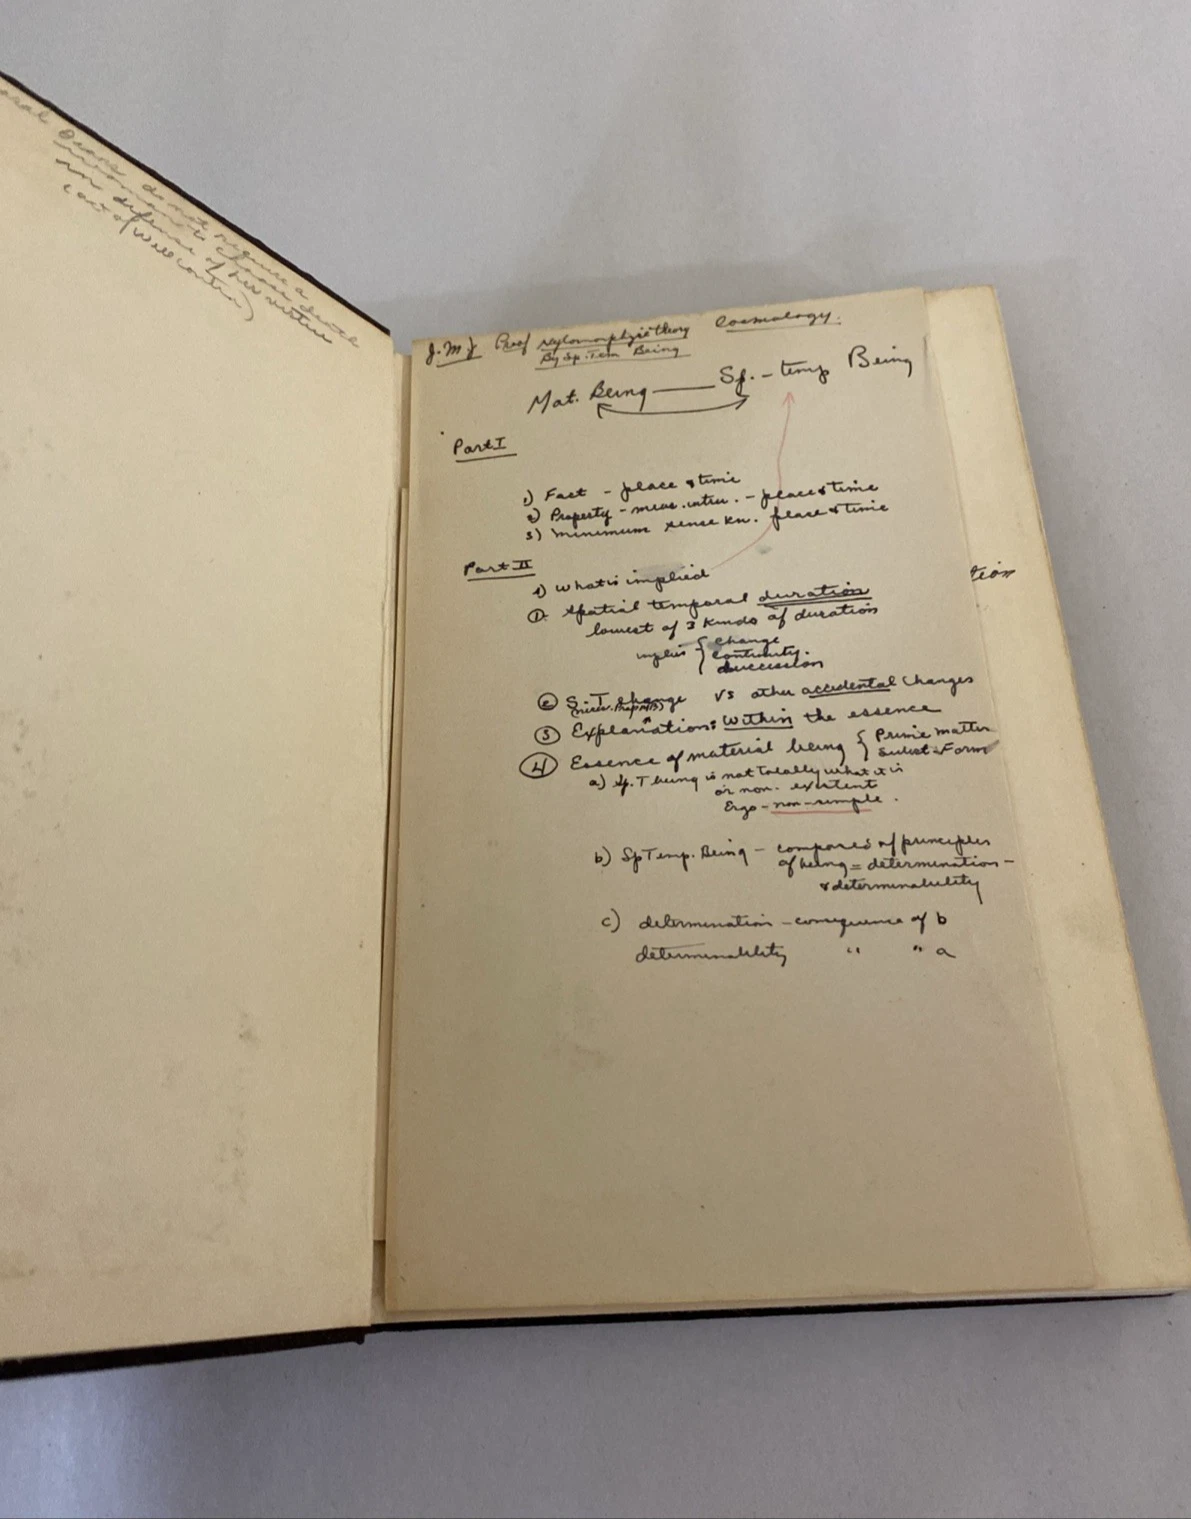 oral Doesn't do not require a
woman to choose death
non defense of her virtue
(act of will contra)
J.M.J. Proof Hylomorphic theory Cosmology.
By Sp. Tem Being
Mat. Being — Sp. - temp Being
Part I
1) Fact - place & time
2) Property - meas. intrin. - place & time
3) Minimum sense kn. place & time
Part II
1) What is implied
①. Spatial temporal duration
lowest of 3 kinds of duration
implies { change
continuity.
succession
② S.T. change vs other accidental changes
③ Explanation: within the essence
④ Essence of material being { Prime matter
Subst. Form
a) Sp. T being is not totally what it is
or non-existent
Ergo - non-simple.
b) Sp Temp. Being - composed of principles
of being = determination -
& determinability
c) determination - consequence of b
determinability " " a
tion